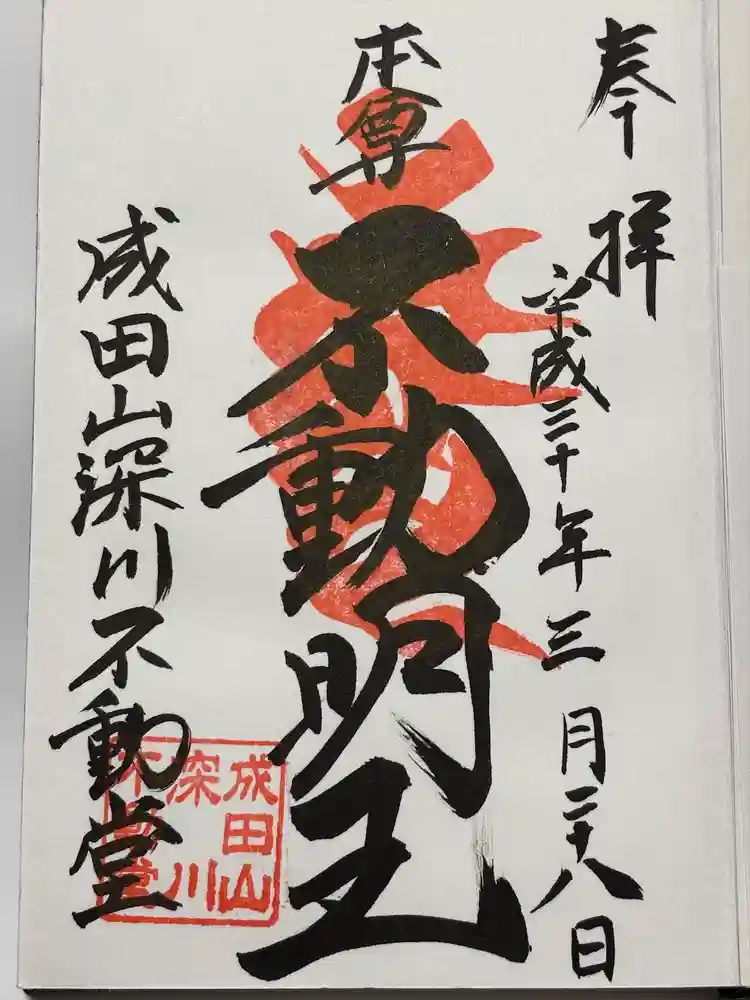 奉拝
平成三十年三月二十八日
本尊
不動明王
成田山深川不動堂
成田山
深川
不動堂